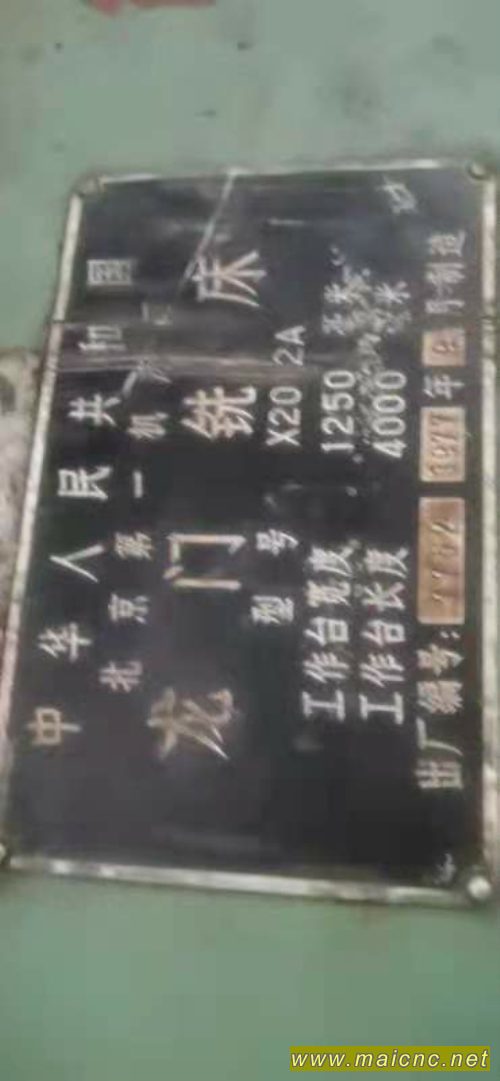 中华人民共和国
北京第一机床厂
龙门铣床
型号 X2012A
工作台宽度 1250 毫米
工作台长度 4000 毫米
出厂编号: 1977年9月制造
www.maicnc.net